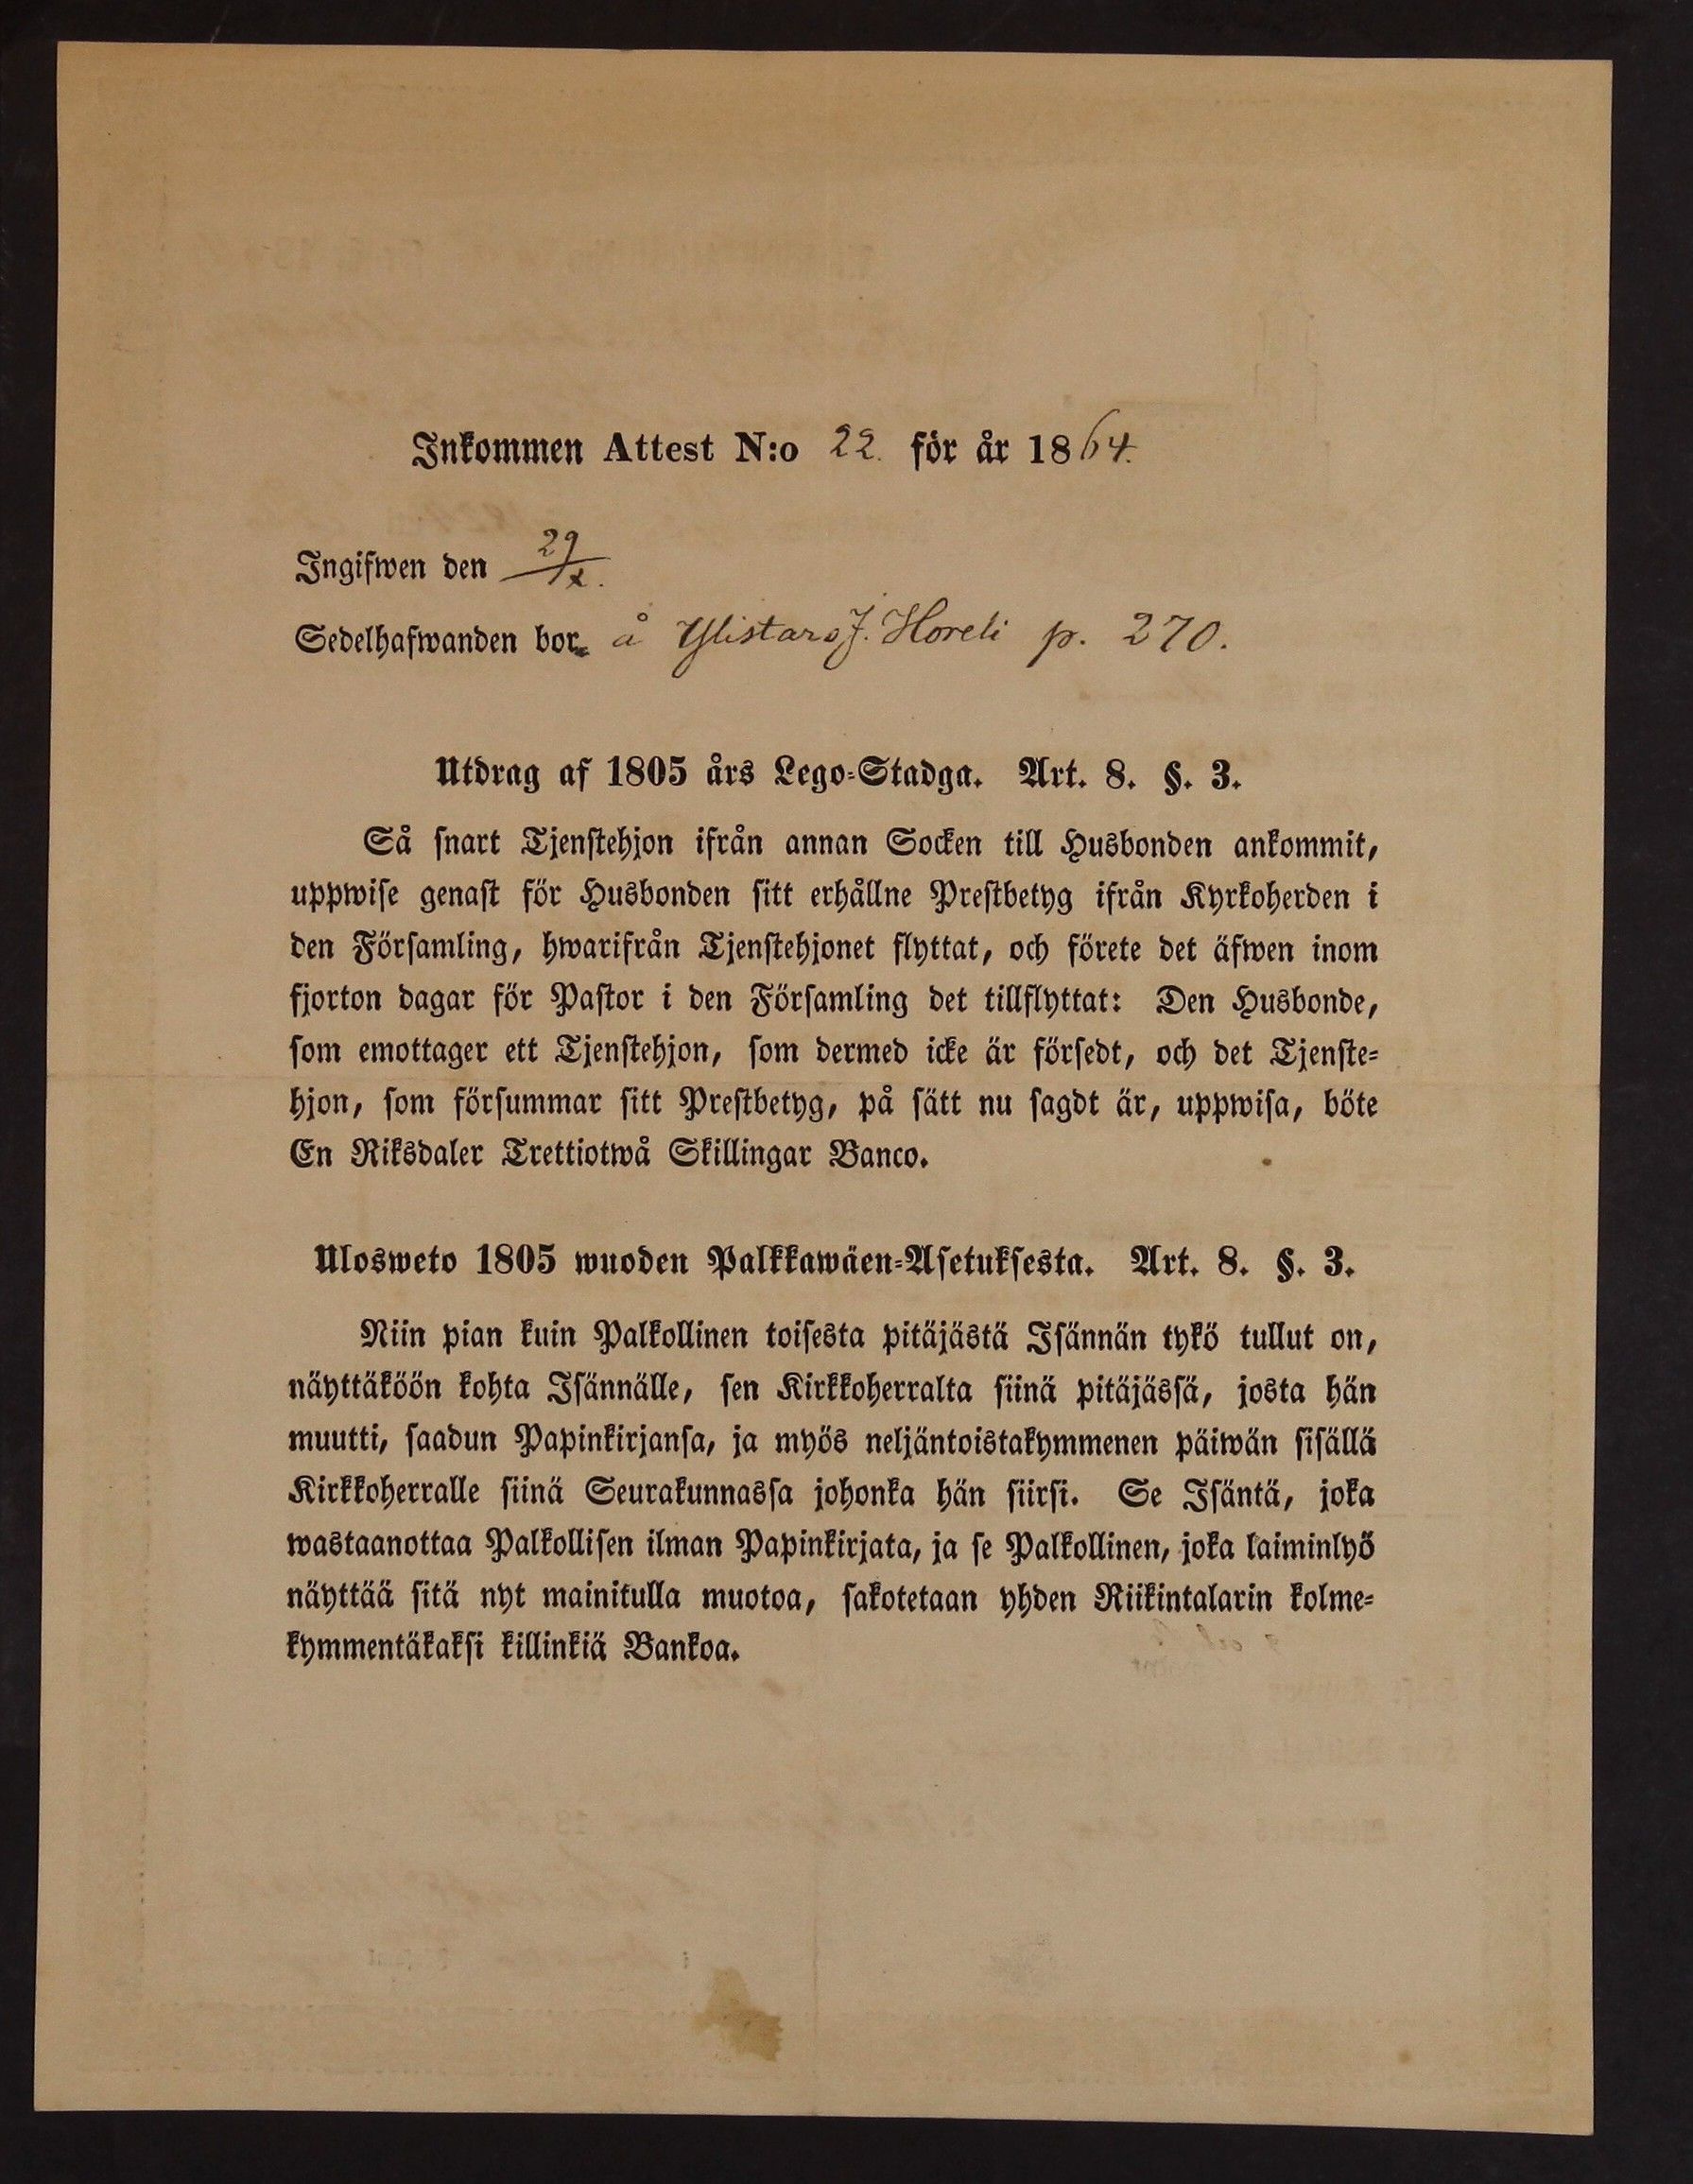 Inkommen Attest N:o 22. för år 1864.
Ingifwen den 29/X.
Sedelhafwanden bor å Ylistaro J. Horeli p. 270.
Utdrag af 1805 års Lego-Stadga. Art. 8. §. 3.
Så snart Tjenstehjon ifrån annan Socken till Husbonden ankommit,
uppwise genast för Husbonden sitt erhållne Prestbetyg ifrån Kyrkoherden i
den Församling, hwarifrån Tjenstehjonet flyttat, och förete det äfwen inom
fjorton dagar för Pastor i den Församling det tillflyttat: Den Husbonde,
som emottager ett Tjenstehjon, som dermed icke är försedt, och det Tjenste-
hjon, som försummar sitt Prestbetyg, på sätt nu sagdt är, uppwisa, böte
En Riksdaler Trettiotwå Skillingar Banco.
Ulosweto 1805 wuoden Palkkawäen-Asetuksesta. Art. 8. §. 3.
Niin pian kuin Palkollinen toisesta pitäjästä Isännän tykö tullut on,
näyttäköön kohta Isännälle, sen Kirkkoherralta siinä pitäjässä, josta hän
muutti, saadun Papinkirjansa, ja myös neljäntoistakymmenen päiwän sisällä
Kirkkoherralle siinä Seurakunnassa johonka hän siirsi. Se Isäntä, joka
wastaanottaa Palkollisen ilman Papinkirjata, ja se Palkollinen, joka laiminlyö
näyttää sitä nyt mainitulla muotoa, sakotetaan yhden Riikintalarin kolme-
kymmentäkaksi killinkiä Bankoa.